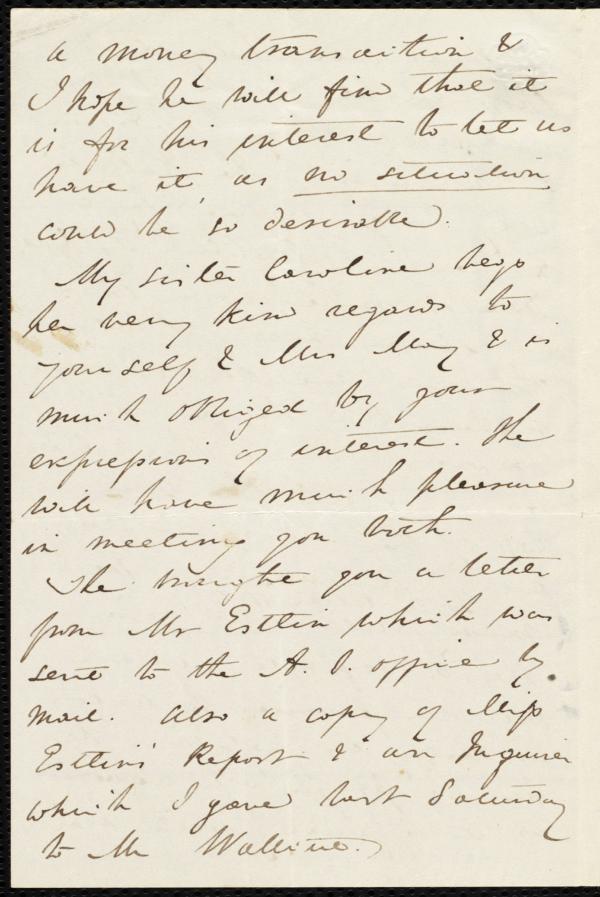 a money transaction &
I hope he will find that it
is for his interest to let us
have it, as no situation
could be so desirable.
My sister Caroline begs
her very kind regards to
yourself & Mrs May & is
much obliged by your
expressions of interest. She
will have much pleasure
in meeting you both.
She brought you a letter
from Mr Estlin which was
sent to the A. S. office by
mail. Also a copy of Miss
Estlin's Report & an Inquirer
which I gave last Saturday
to Mr